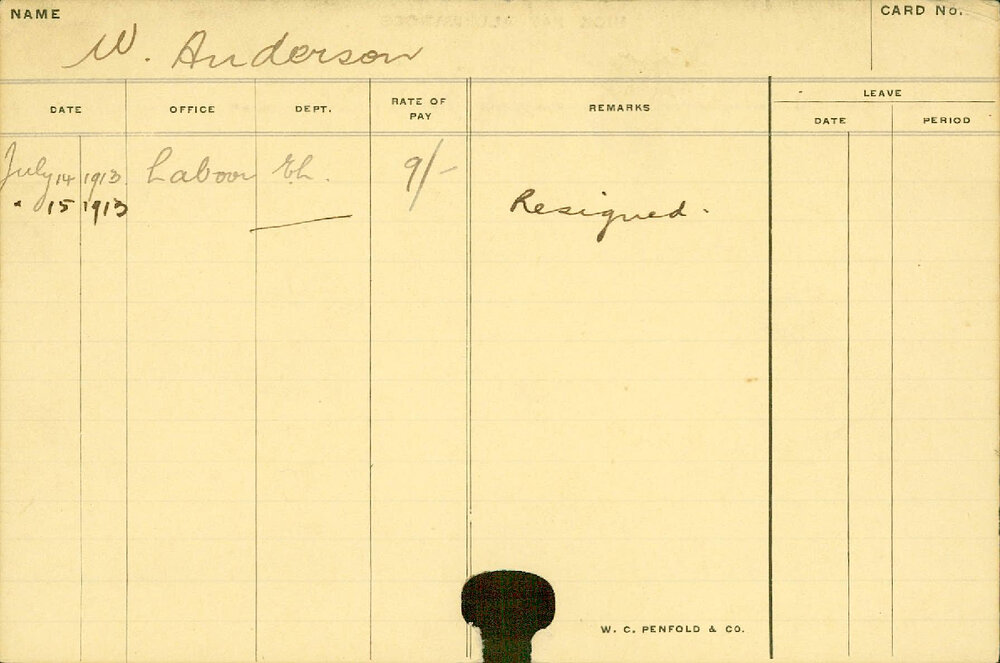 NAME CARD No.
W. Anderson
DATE OFFICE DEPT. RATE OF PAY REMARKS LEAVE
DATE PERIOD
July 14 1913 Labour El. 9/-
" 15 1913 Resigned.
W. C. PENFOLD & CO.